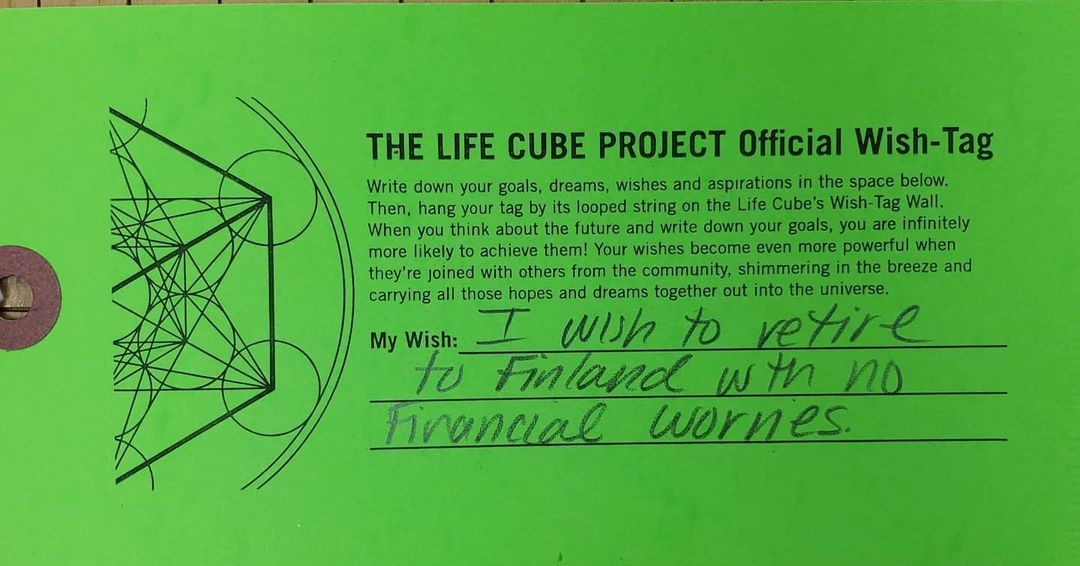 THE LIFE CUBE PROJECT Official Wish-Tag
Write down your goals, dreams, wishes and aspirations in the space below.
Then, hang your tag by its looped string on the Life Cube's Wish-Tag Wall.
When you think about the future and write down your goals, you are infinitely
more likely to achieve them! Your wishes become even more powerful when
they're joined with others from the community, shimmering in the breeze and
carrying all those hopes and dreams together out into the universe.
My Wish: I wish to retire
to Finland with no
Financial worries.